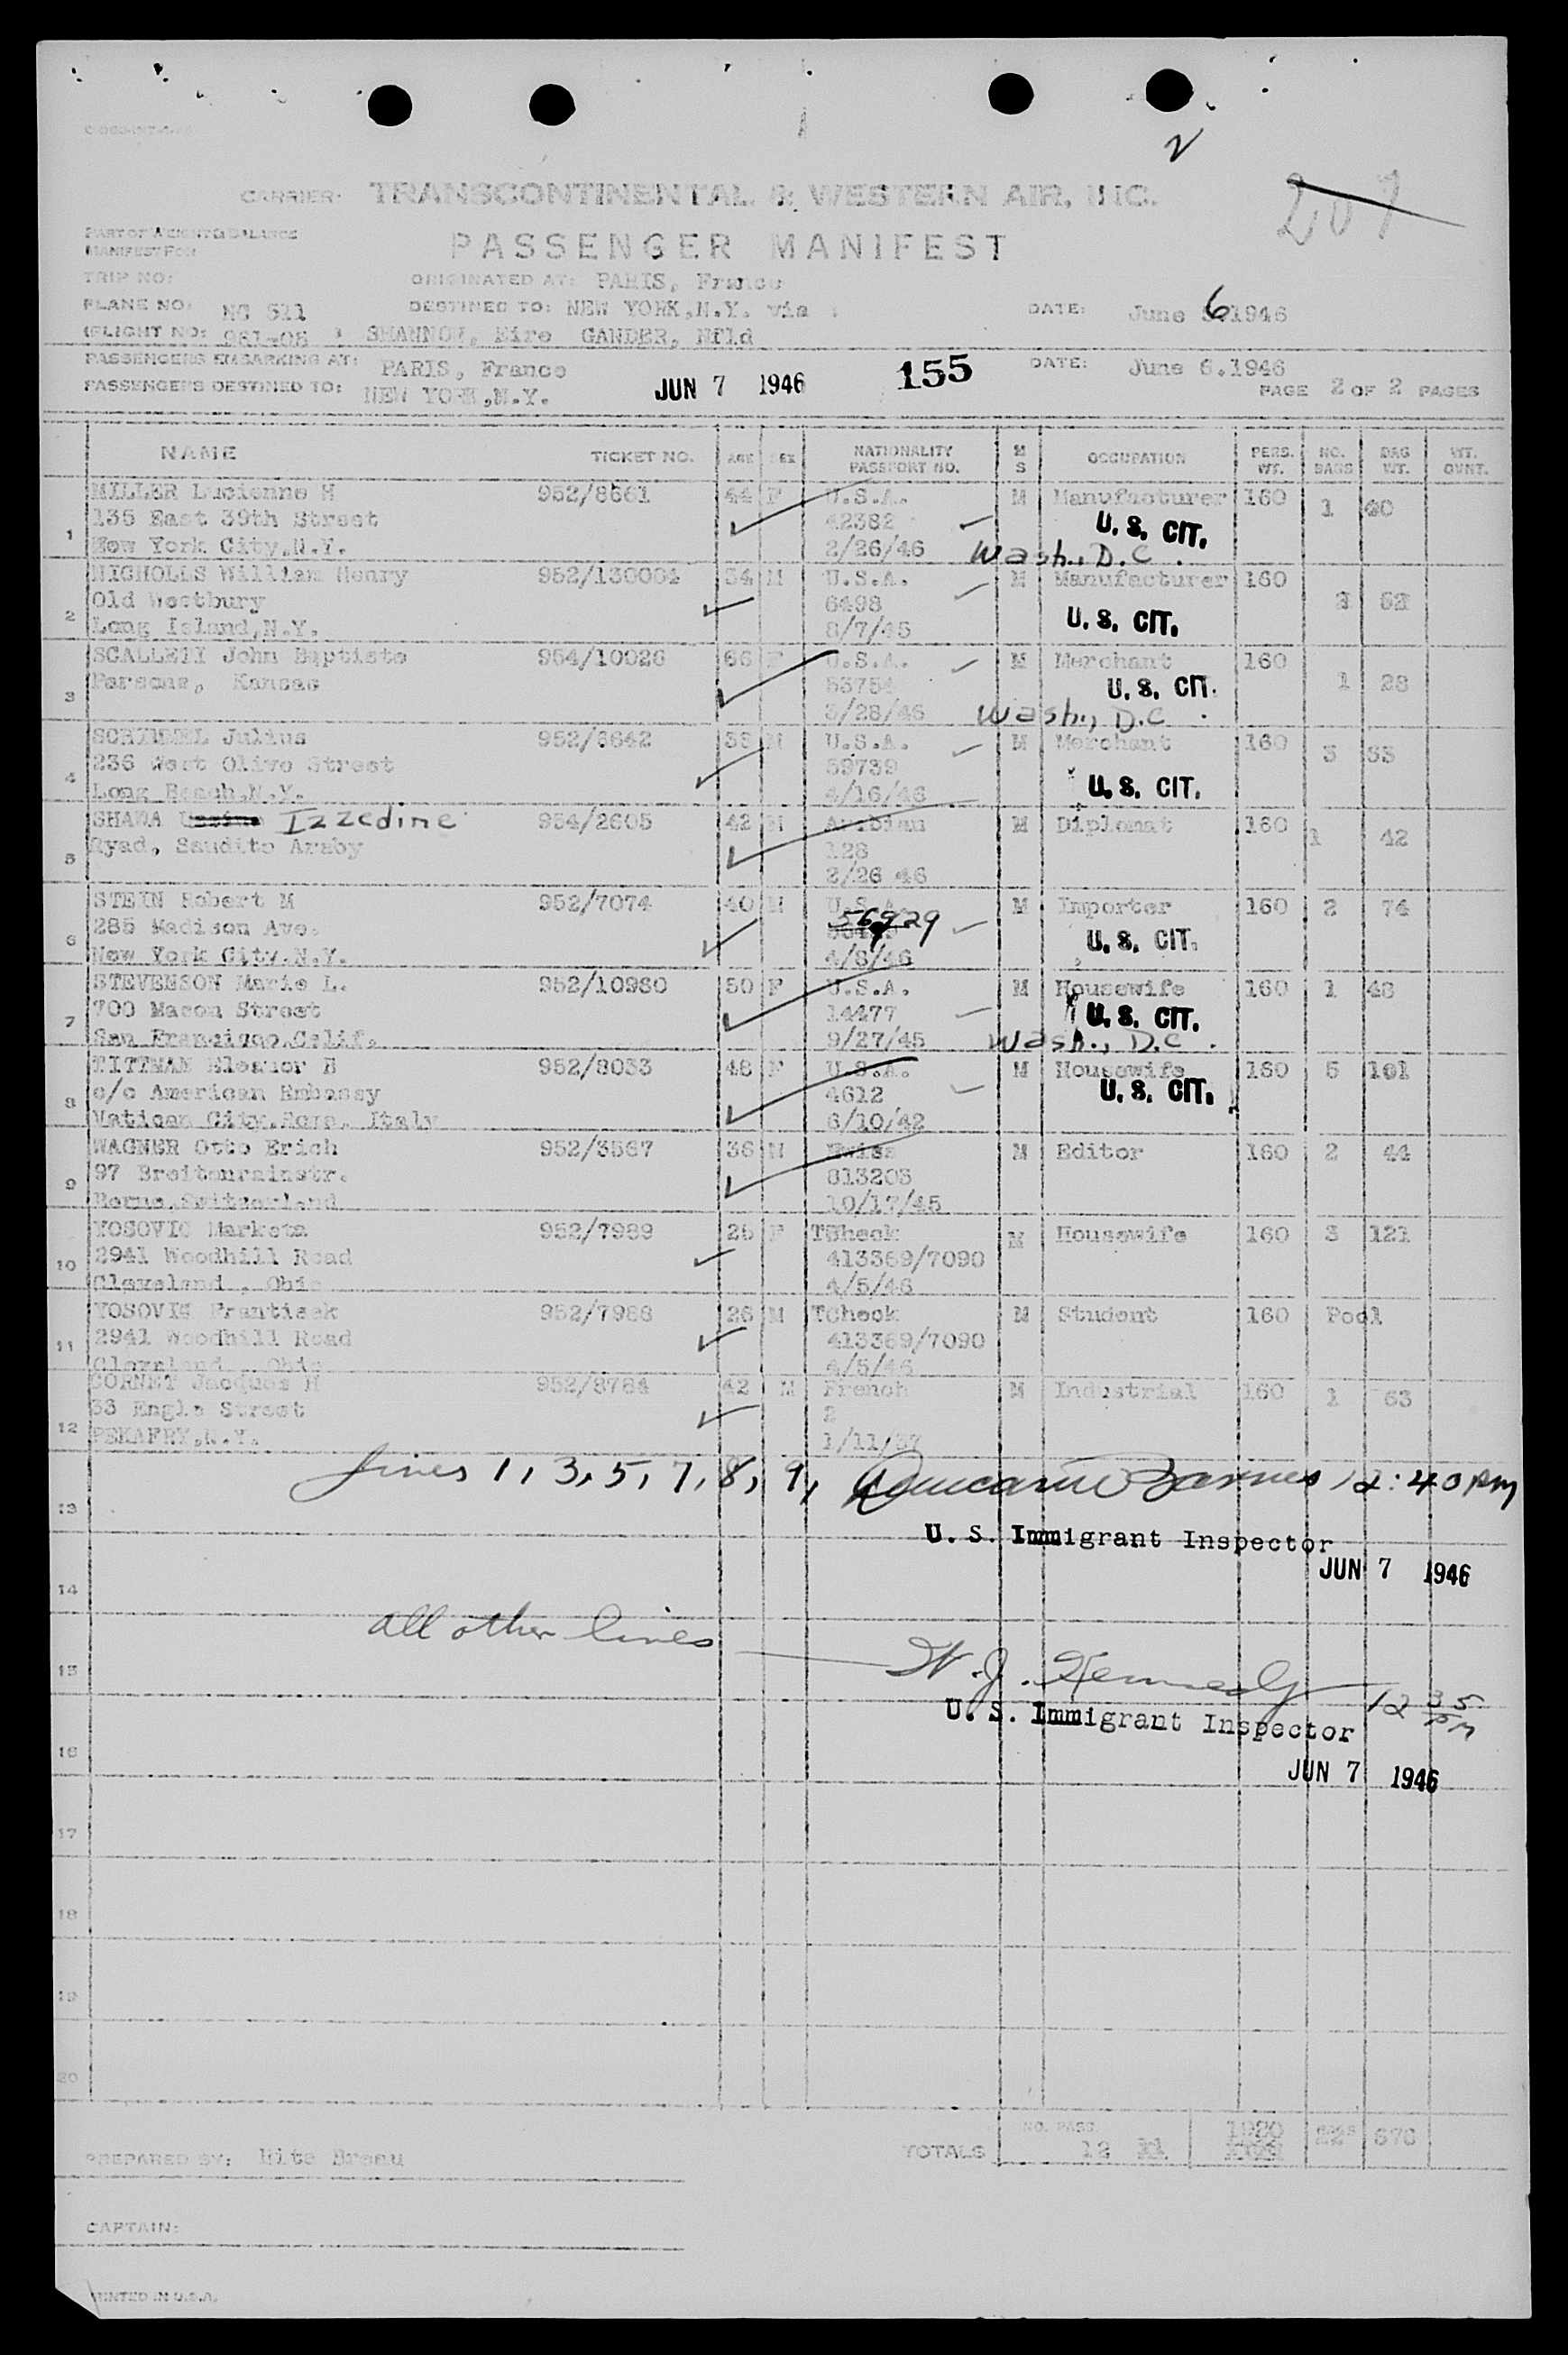 2
207
CARRIER: TRANSCONTINENTAL & WESTERN AIR, INC.
PART OF WEIGHT & BALANCE
MANIFEST FOR
PASSENGER MANIFEST
TRIP NO: ORIGINATED AT: PARIS, France
PLANE NO: NC 511 DESTINED TO: NEW YORK,N.Y. via DATE: June 6.1946
FLIGHT NO: 961-06 SHANNON, Eire GANDER, Nfld
PASSENGERS EMBARKING AT: PARIS, France DATE: June 6.1946
PASSENGERS DESTINED TO: NEW YORK,N.Y. JUN 7 1946 155 PAGE 2 OF 2 PAGES
NAME TICKET NO. AGE SEX NATIONALITY PASSPORT NO. M S OCCUPATION PERS. WT. NO. BAGS BAG WT. WT. OVNT.
MILLER Lucienne H 952/8661 44 F U.S.A. M Manufacturer 160 1 40
135 East 39th Street 42382 U. S. CIT.
1 New York City,N.Y. 2/26/46 Wash., D.C.
NICHOLLS William Henry 952/130064 54 M U.S.A. M Manufacturer 160
Old Westbury 6498
2 Long Island,N.Y. 8/7/45 U. S. CIT.
SCALLETI John Baptiste 954/10026 66 U.S.A. M Merchant 160
Parsons, Kansas U. S. CIT. 1 28
3 3/28/46 Wash., D.C.
SCHINDEL Julius 952/6642 M U.S.A. M Merchant 160 3 53
236 West Olive Street 59739
4 Long Beach,N.Y. 4/16/46 U. S. CIT.
SHAWA Izzedine 954/2605 42 M Arabian M Diplomat 160 1 42
Ryad, Saudite Araby 128
5 2/26 46
STEIN Robert M 952/7074 40 M U.S.A. M Importer 160 2 74
285 Madison Ave. 56929
6 New York City,N.Y. 4/8/46 U. S. CIT.
STEVENSON Marie L. 952/10980 50 F U.S.A. M Housewife 160 1 48
700 Mason Street 14477 U. S. CIT.
7 San Francisco,Calif. 9/27/45 Wash., D.C.
TITTMAN Eleanor B 952/8033 48 F U.S.A. M Housewife 160 5 101
c/o American Embassy 4612 U. S. CIT.
8 Vatican City,Rome, Italy 6/10/42
WAGNER Otto Erich 952/3567 36 M Swiss M Editor 160 2 44
97 Breitenrainstr. 813203
9 Berne,Switzerland 10/17/45
VOSOVIC Marketa 952/7989 25 F TCheck M Housewife 160 3 121
2941 Woodhill Road 413369/7090
10 Cleveland , Ohio 4/5/46
VOSOVIC Frantisek 952/7988 26 M TCheck M Student 160 Pool
2941 Woodhill Road 413369/7090
11 Cleveland , Ohio 4/5/46
CORNET Jacques H 952/8784 42 M French M Industrial 160 1 63
33 Engle Street 2
12 N.Y. 1/11/37
13 Lines 1, 3, 5, 7, 8, 9, Barnes 12:40 PM
U. S. Immigrant Inspector
14 JUN 7 1946
all other lines
15 W. J. Kennedy 12 35 PM
U. S. Immigrant Inspector
16 JUN 7 1946
17
18
19
20
TOTALS NO. PASS. 12 11 1920 22 676
PREPARED BY: Rita
CAPTAIN:
PRINTED IN U.S.A.